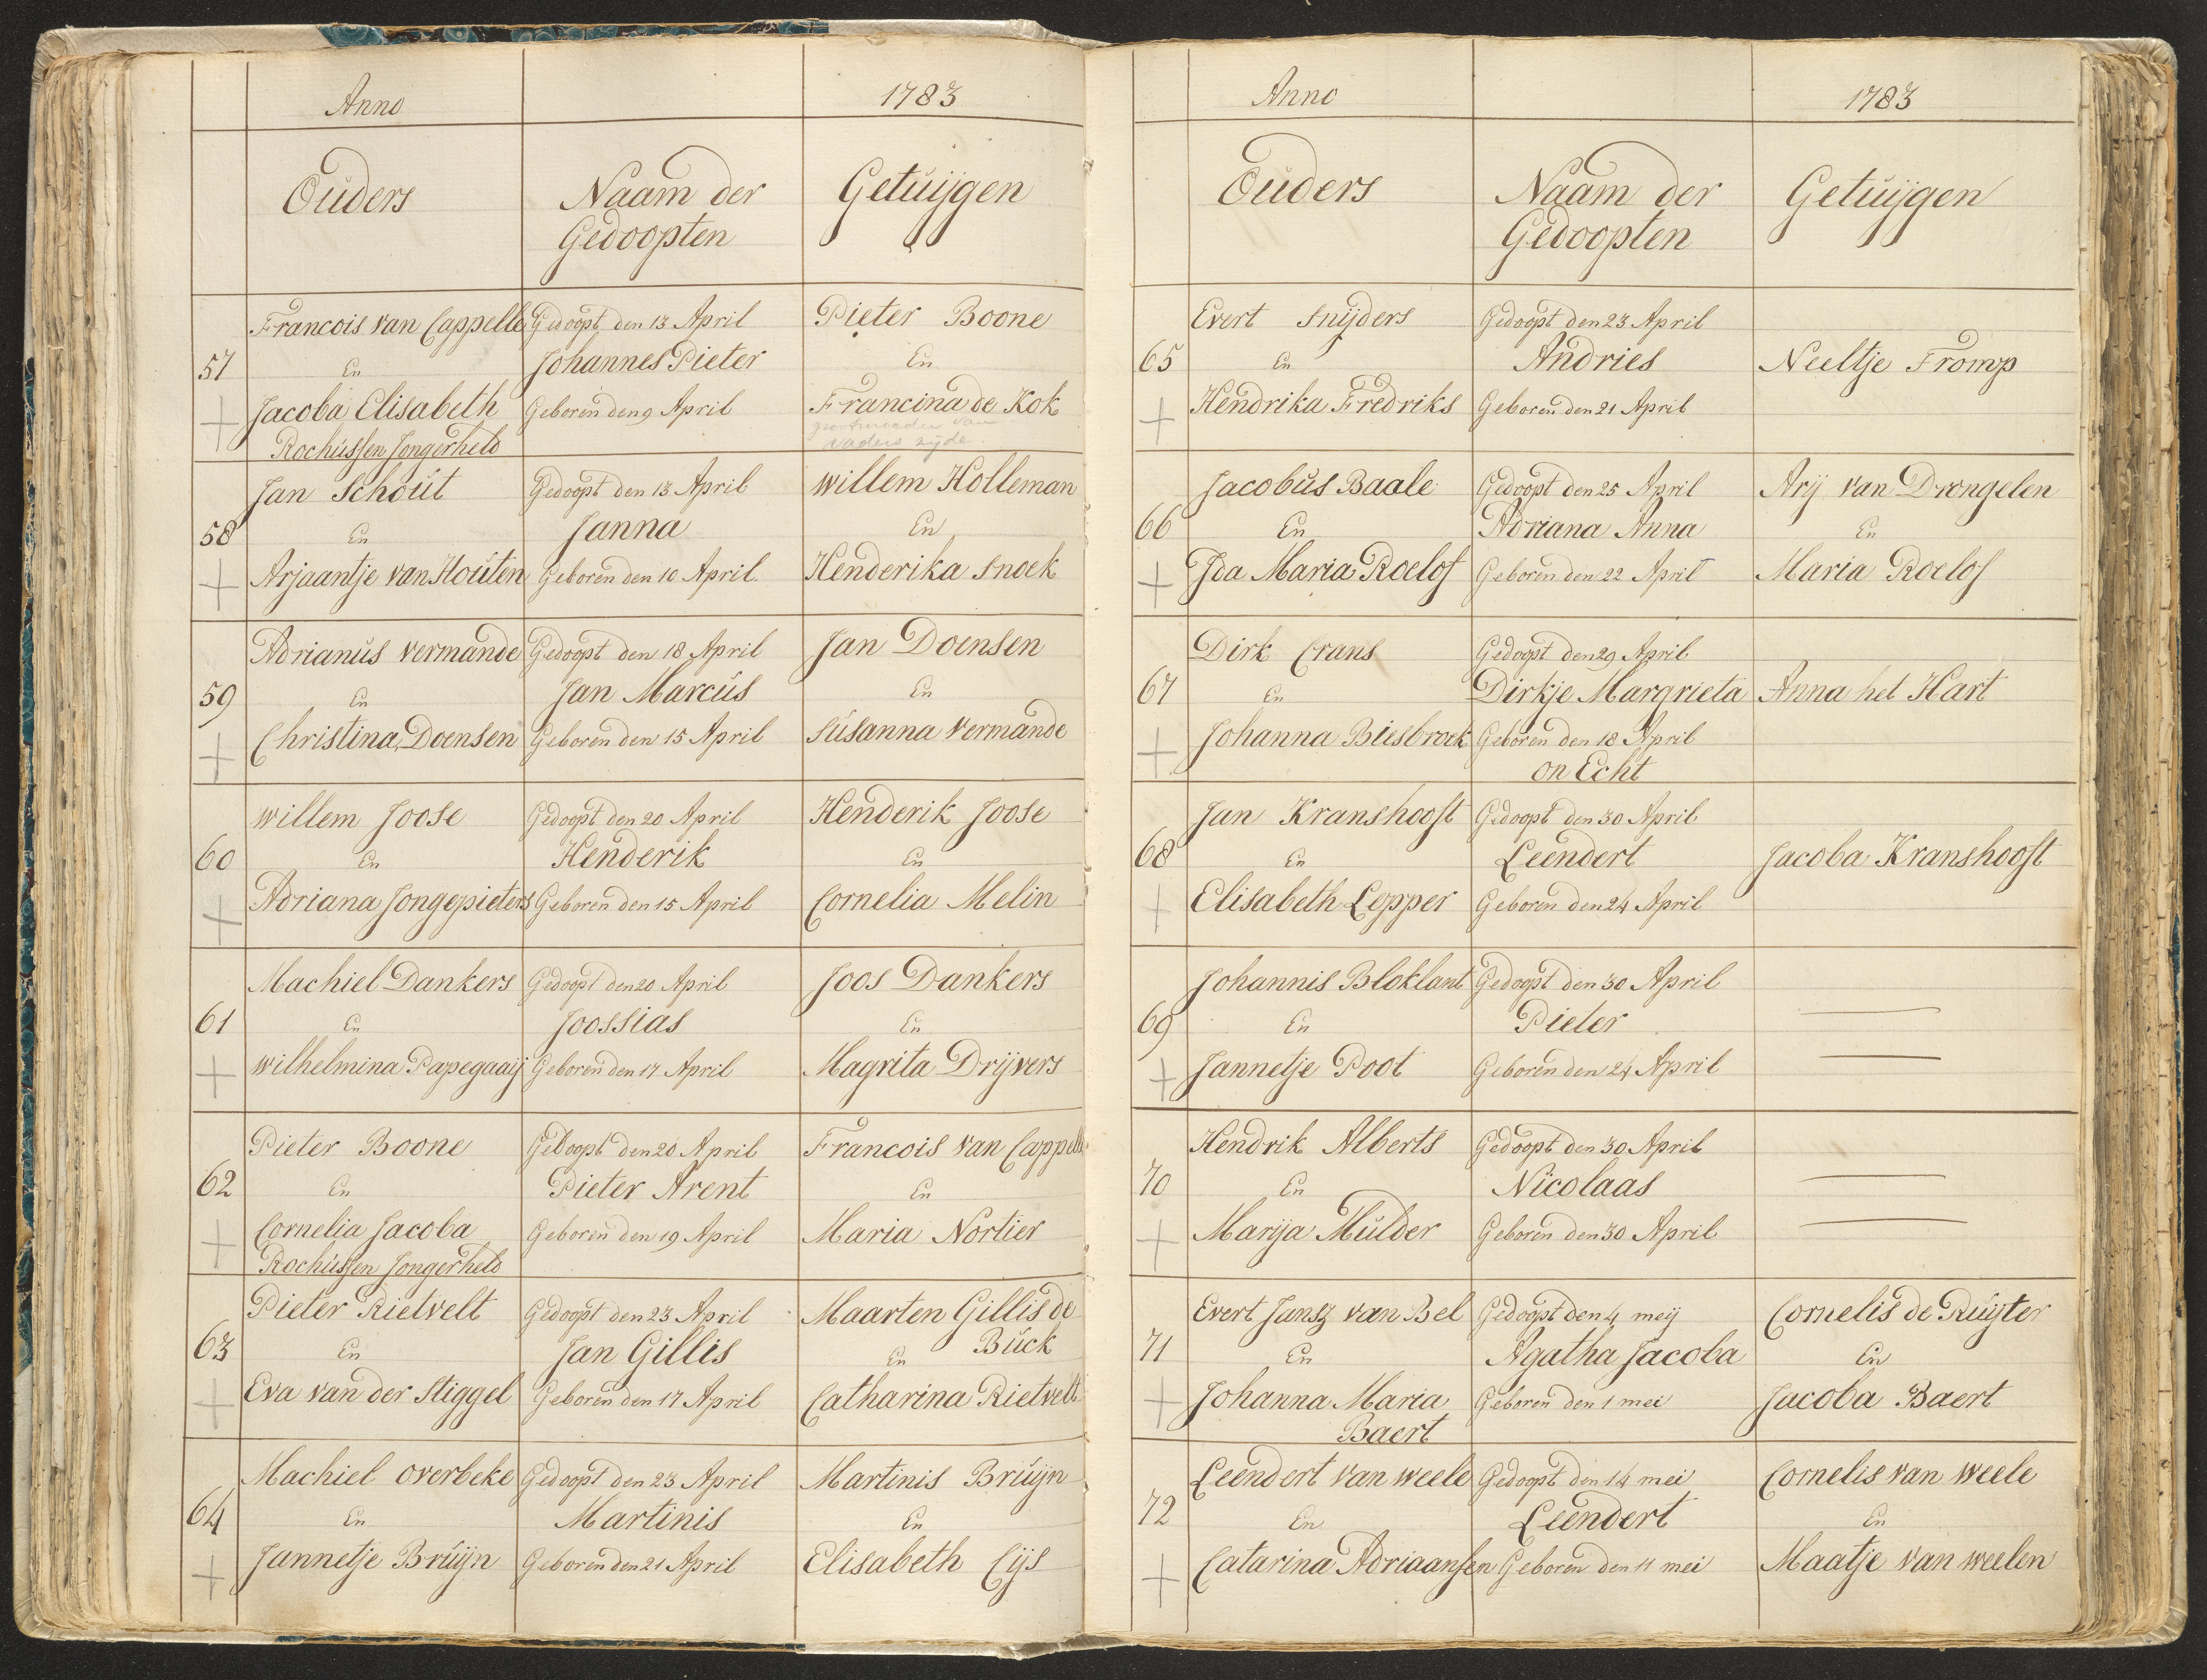 Anno 1783
Ouders Naam der Getuijgen
Gedoopten
Francois van Cappelle Gedoopt den 13 April Pieter Boone
57 En Johannes Pieter En
Jacoba Elisabeth Geboren den 9 April Francina de Kok
grootmoeder van
Rochussen Jongerheld vaders zijde
Jan Schout Gedoopt den 13 April Willem Holleman
58 En Janna En
Arjaantje van Houten Geboren den 10 April Henderika Snoek
Adrianus Vermande Gedoopt den 18 April Jan Doensen
59 En Jan Marcus En
Christina Doensen Geboren den 15 April Susanna Vermande
Willem Joose Gedoopt den 20 April Henderik Joose
60 En Henderik En
Adriana Jongepieters Geboren den 15 April Cornelia Melin
Machiel Dankers Gedoopt den 20 April Joos Dankers
61 En Joossias En
Wilhelmina Papegaaij Geboren den 17 April Magrita Drijvers
Pieter Boone Gedoopt den 20 April Francois van Cappelle
62 En Pieter Arent En
Cornelia Jacoba Geboren den 19 April Maria Nortier
Rochussen Jongerheld
Pieter Rietvelt Gedoopt den 23 April Maarten Gillis de
63 En Jan Gillis En Buck
Eva van der Stiggel Geboren den 17 April Catharina Rietvelt
Machiel Overbeke Gedoopt den 23 April Martinis Bruijn
64 En Martinis En
Jannetje Bruijn Geboren den 21 April Elisabeth Cijs
Anno 1783
Ouders Naam der Getuijgen
Gedoopten
Evert Snijders Gedoopt den 23 April
65 En Andries Neeltje Fromp
Hendrika Fredriks Geboren den 21 April
Jacobus Baale Gedoopt den 25 April Arij van Drongelen
66 En Adriana Anna En
Ida Maria Roelof Geboren den 22 April Maria Roelof
Dirk Crans Gedoopt den 29 April
67 En Dirkje Margrieta Anna het Hart
Johanna Biesbroek Geboren den 18 April
on Echt
Jan Kranshooft Gedoopt den 30 April
68 En Leendert Jacoba Kranshooft
Elisabeth Lepper Geboren den 24 April
Johannis Bloklant Gedoopt den 30 April
69 En Pieter
Jannetje Poot Geboren den 24 April
Hendrik Alberts Gedoopt den 30 April
70 En Nicolaas
Marija Mulder Geboren den 30 April
Evert Jansz van Bel Gedoopt den 4 meij Cornelis de Ruijter
71 En Agatha Jacoba En
Johanna Maria Geboren den 1 mei Jacoba Baert
Baert
Leendert van Weele Gedoopt den 14 mei Cornelis van Weele
72 En Leendert En
Catarina Adriaansen Geboren den 11 mei Maatje van Weelen